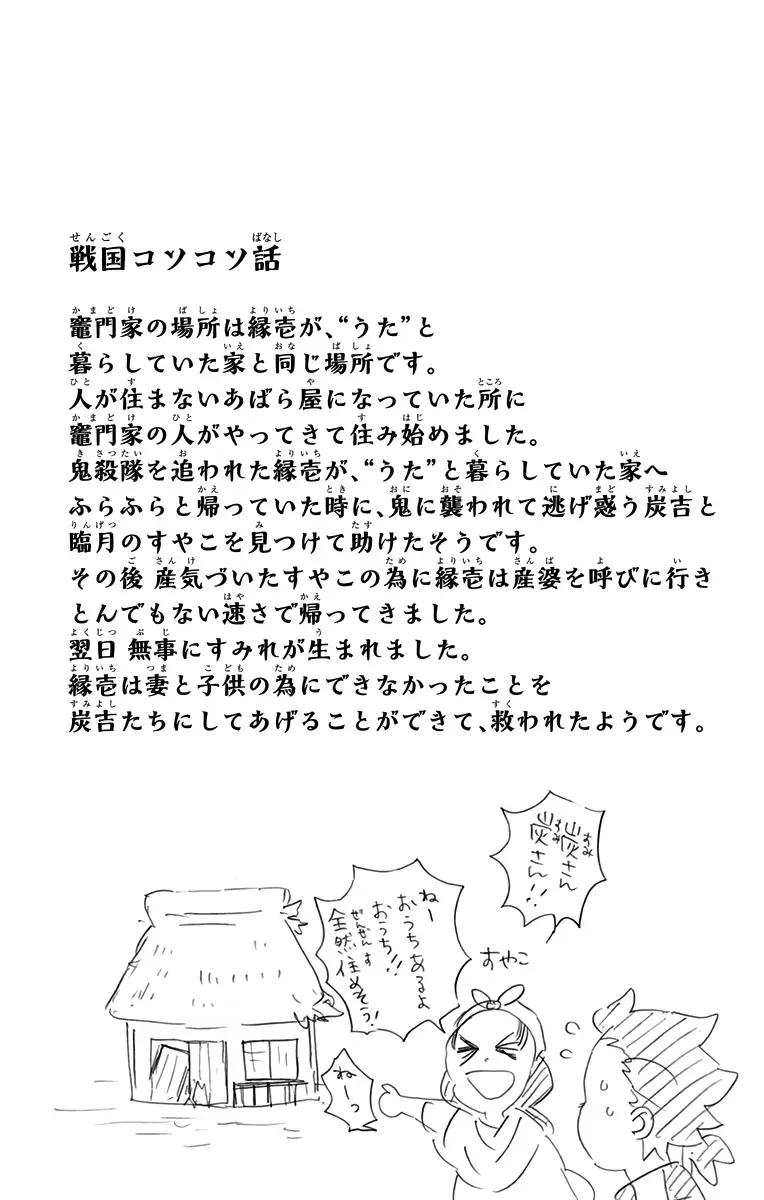 戦国コソコソ話
竈門家の場所は縁壱が、“うた”と
暮らしていた家と同じ場所です。
人が住まないあばら屋になっていた所に
竈門家の人がやってきて住み始めました。
鬼殺隊を追われた縁壱が、“うた”と暮らしていた家へ
ふらふらと帰っていた時に、鬼に襲われて逃げ惑う炭吉と
臨月のすやこを見つけて助けたそうです。
その後 産気づいたすやこの為に縁壱は産婆を呼びに行き
とんでもない速さで帰ってきました。
翌日 無事にすみれが生まれました。
縁壱は妻と子供の為にできなかったことを
炭吉たちにしてあげることができて、救われたようです。
炭さん
炭さん!!
ねー
おうちあるよ
おうち!!
全然住めそう!
すやこ
ねーっ